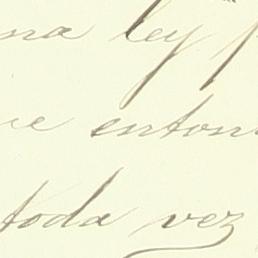 na ley p
e enton
toda vez